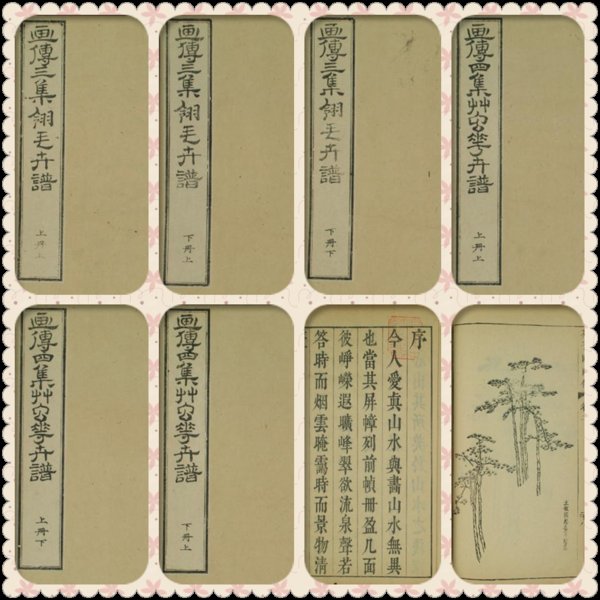 画傳三集翎毛卉譜
上冊上
画傳三集翎毛卉譜
下冊上
画傳三集翎毛卉譜
下冊下
画傳四集艸虫華卉譜
上冊上
画傳四集艸虫華卉譜
上冊下
画傳四集艸虫華卉譜
下冊上
序
今人愛真山水與畫山水無異
也當其屏幛列前幀冊盈几面
彼崢嶸遐曠峰翠欲流泉聲若
答時而烟雲晻靄時而景物清